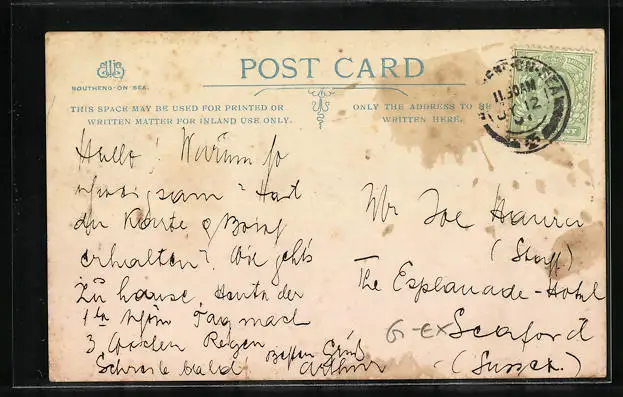 POST CARD
SOUTHEND-ON SEA.
THIS SPACE MAY BE USED FOR PRINTED OR
WRITTEN MATTER FOR INLAND USE ONLY.
ONLY THE ADDRESS TO BE
WRITTEN HERE.
SOUTHEND-ON-SEA
11.30AM
12
Hallo! Warum so
schweigsam? Hast
du Karte & Brief
erhalten? Wie geht's
zu hause, Heute der
1te schöne Tag nach
3 Wochen Regen
Schreibe bald! Besten Gruß
Arthur
Mr Joe
(Staff)
The Esplanade-Hotel
G-EX Seaford
(Sussex.)